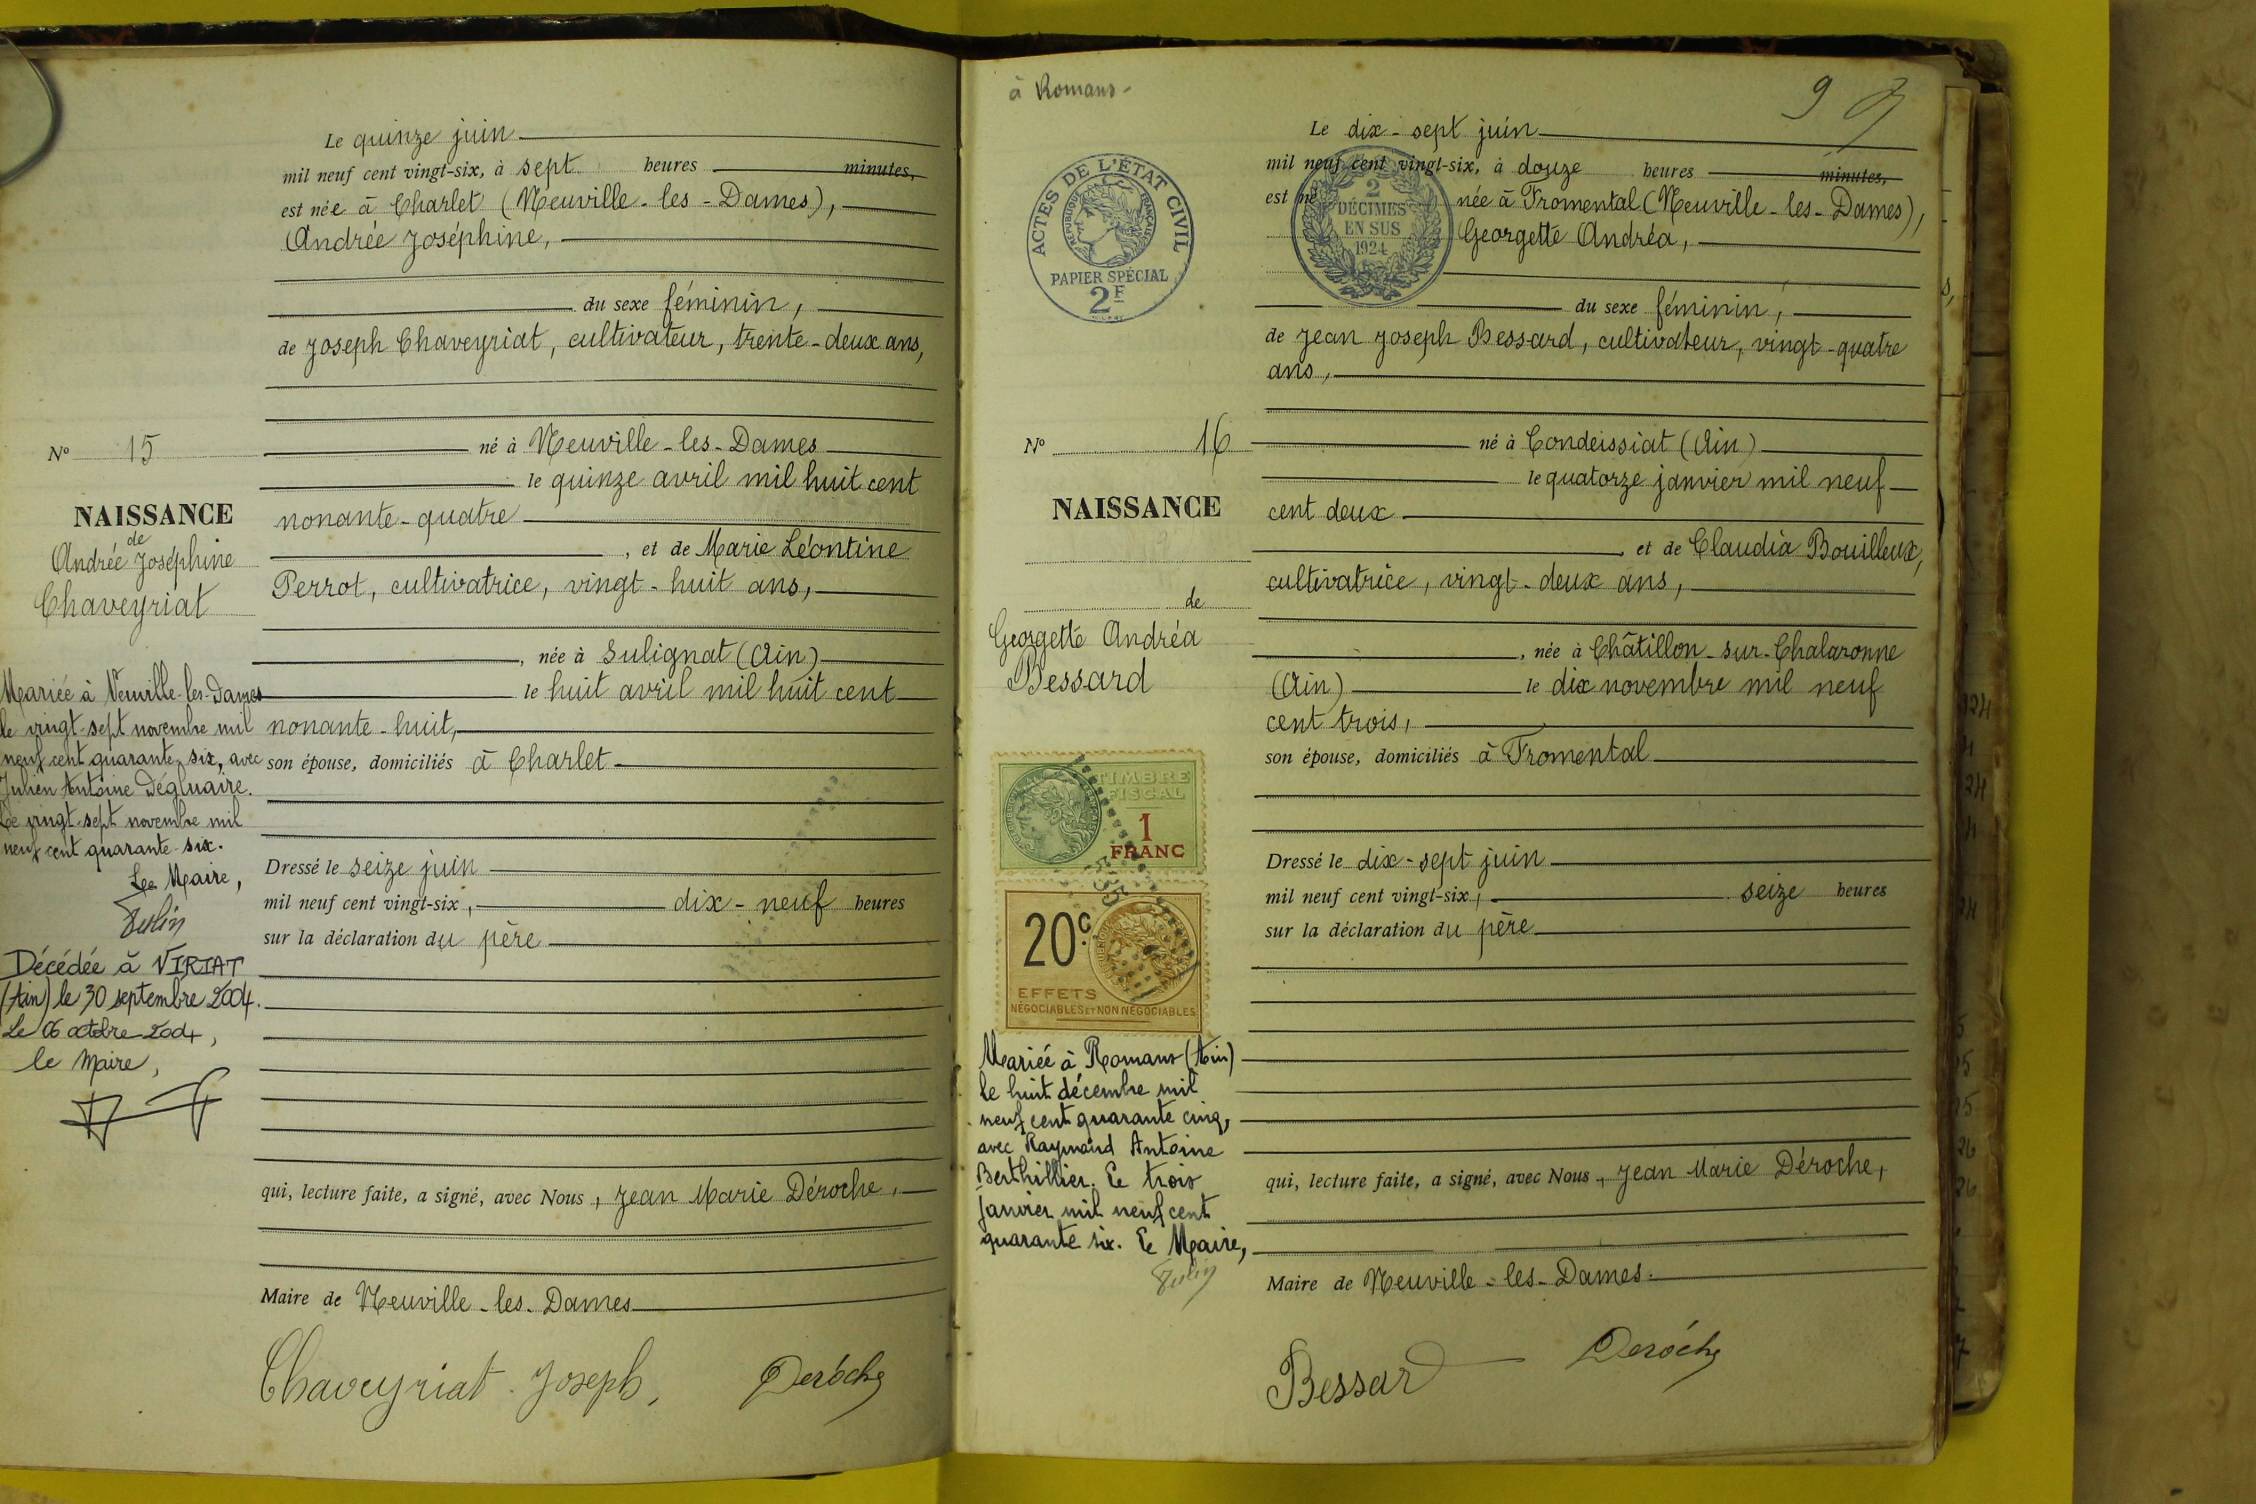 Le quinze juin
mil neuf cent vingt-six, à sept heures minutes,
est née à Charlet (Neuville-les-Dames),
Andrée Joséphine,
du sexe féminin,
de Joseph Chaveyriat, cultivateur, trente-deux ans,
Nº 15
né à Neuville-les-Dames
le quinze avril mil huit cent
nonante-quatre
NAISSANCE
de
Andrée Joséphine
Chaveyriat
, et de Marie Léontine
Perrot, cultivatrice, vingt-huit ans,
, née à Sulignat (Ain)
le huit avril mil huit cent
nonante-huit,
son épouse, domiciliés à Charlet
Mariée à Neuville-les-Dames
le vingt-sept novembre mil
neuf cent quarante six, avec
Julien Antoine Dégluaire.
Le vingt-sept novembre mil
neuf cent quarante-six.
Le Maire,
Décédée à VIRIAT
(Ain) le 30 septembre 2004.
Le 06 octobre 2004,
le Maire,
Dressé le seize juin
mil neuf cent vingt-six, dix-neuf heures
sur la déclaration du père
qui, lecture faite, a signé, avec Nous, Jean Marie Déroche,
Maire de Neuville-les-Dames
Chaveyriat Joseph, Deroche
à Romans-
9
ACTES DE L'ÉTAT CIVIL
RÉPUBLIQUE FRANÇAISE
PAPIER SPÉCIAL
2F
2
DÉCIMES
EN SUS
1924
Le dix-sept juin
mil neuf cent vingt-six, à douze heures minutes,
est né née à Fromental (Neuville-les-Dames),
Georgette Andréa,
du sexe féminin,
de Jean Joseph Bessard, cultivateur, vingt-quatre
ans,
Nº 16
né à Condeissiat (Ain)
le quatorze janvier mil neuf
cent deux
NAISSANCE
de
Georgette Andréa
Bessard
, et de Claudia Bouilleux,
cultivatrice, vingt-deux ans,
, née à Châtillon-sur-Chalaronne
(Ain) le dix novembre mil neuf
cent trois,
son épouse, domiciliés à Fromental
TIMBRE
FISCAL
1
FRANC
20c
EFFETS
NÉGOCIABLES ET NON NÉGOCIABLES
Mariée à Romans (Ain)
le huit décembre mil
neuf cent quarante cinq,
avec Raymond Antoine
Berthillier. Le trois
janvier mil neuf cent
quarante six. Le Maire,
Dressé le dix-sept juin
mil neuf cent vingt-six, seize heures
sur la déclaration du père
qui, lecture faite, a signé, avec Nous, Jean Marie Déroche,
Maire de Neuville-les-Dames.
Bessard Deroche